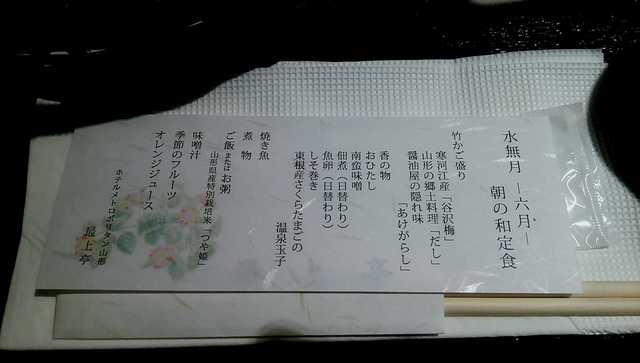 水無月 ―六月―
朝の和定食
竹かご盛り
寒河江産「谷沢梅」
山形の郷土料理「だし」
醤油屋の隠れ味
「あけがらし」
香の物
おひたし
南蛮味噌
佃煮（日替わり）
魚卵（日替わり）
しそ巻き
東根産さくらたまごの
温泉玉子
焼き魚
煮物
ご飯またはお粥
山形県産特別栽培米「つや姫」
味噌汁
季節のフルーツ
オレンジジュース
ホテルメトロポリタン山形
最上亭